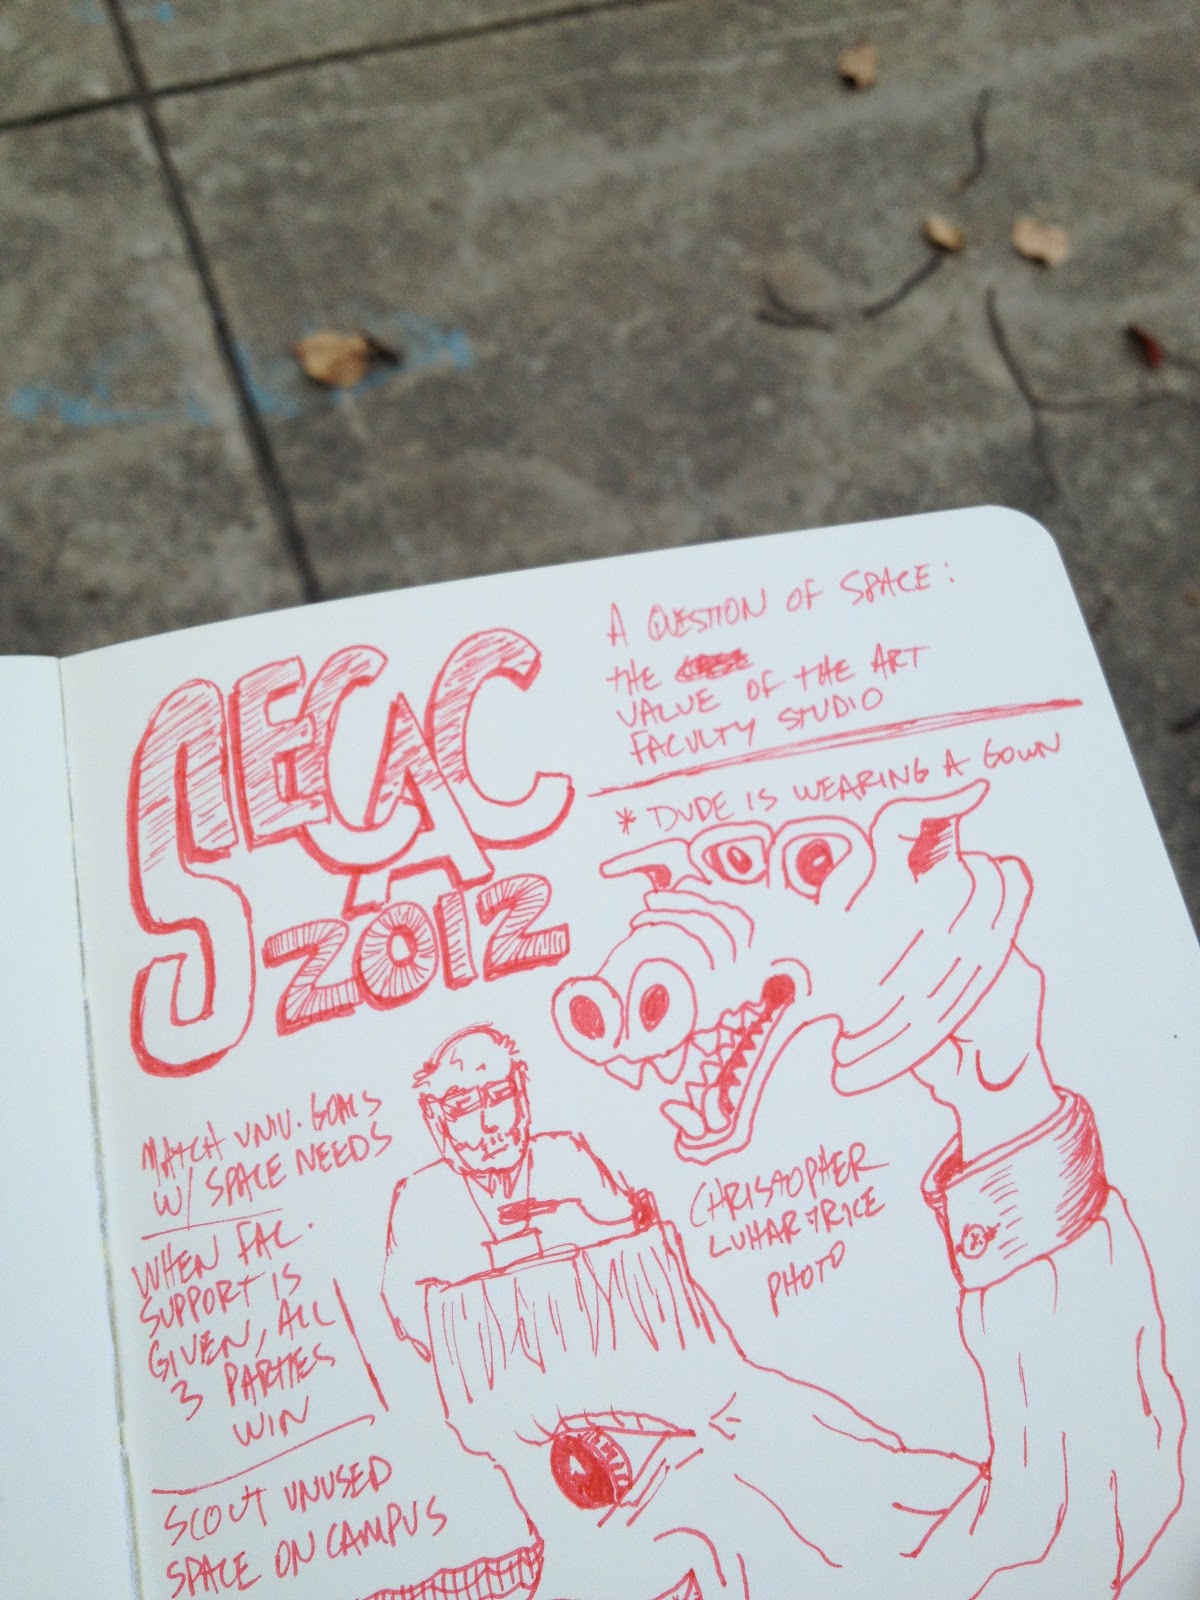 SECAC
2012
A QUESTION OF SPACE:
THE
VALUE OF THE ART
FACULTY STUDIO
* DUDE IS WEARING A GOWN
MATCH UNIV. GOALS
W/ SPACE NEEDS
WHEN FAC.
SUPPORT IS
GIVEN, ALL
3 PARTIES
WIN
SCOUT UNUSED
SPACE ON CAMPUS
CHRISTOPHER
PHOTO